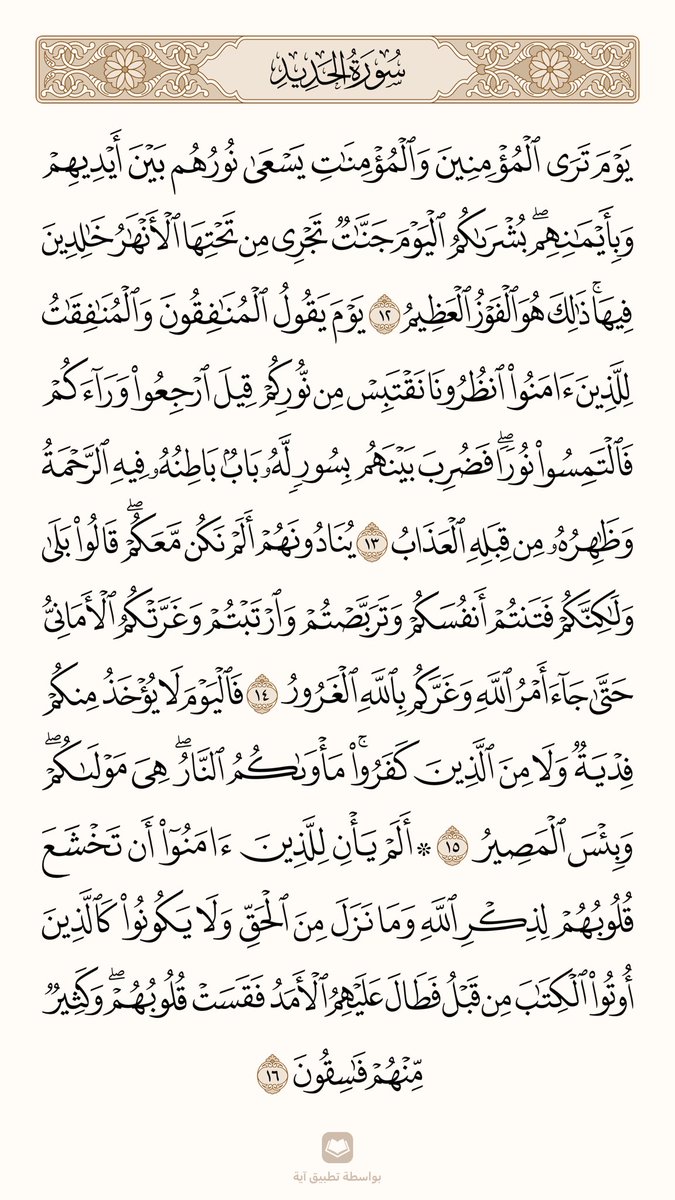 سُورَةُ الحَدِيدِ
يَوۡمَ تَرَى ٱلۡمُؤۡمِنِينَ وَٱلۡمُؤۡمِنَٰتِ يَسۡعَىٰ نُورُهُم بَيۡنَ أَيۡدِيهِمۡ
وَبِأَيۡمَٰنِهِمۖ بُشۡرَىٰكُمُ ٱلۡيَوۡمَ جَنَّٰتٞ تَجۡرِي مِن تَحۡتِهَا ٱلۡأَنۡهَٰرُ خَٰلِدِينَ
فِيهَاۚ ذَٰلِكَ هُوَ ٱلۡفَوۡزُ ٱلۡعَظِيمُ ١٢ يَوۡمَ يَقُولُ ٱلۡمُنَٰفِقُونَ وَٱلۡمُنَٰفِقَٰتُ
لِلَّذِينَ ءَامَنُواْ ٱنظُرُونَا نَقۡتَبِسۡ مِن نُّورِكُمۡ قِيلَ ٱرۡجِعُواْ وَرَآءَكُمۡ
فَٱلۡتَمِسُواْ نُورٗاۖ فَضُرِبَ بَيۡنَهُم بِسُورٖ لَّهُۥ بَابُۢ بَاطِنُهُۥ فِيهِ ٱلرَّحۡمَةُ
وَظَٰهِرُهُۥ مِن قِبَلِهِ ٱلۡعَذَابُ ١٣ يُنَادُونَهُمۡ أَلَمۡ نَكُن مَّعَكُمۡۖ قَالُواْ بَلَىٰ
وَلَٰكِنَّكُمۡ فَتَنتُمۡ أَنفُسَكُمۡ وَتَرَبَّصۡتُمۡ وَٱرۡتَبۡتُمۡ وَغَرَّتۡكُمُ ٱلۡأَمَانِيُّ
حَتَّىٰ جَآءَ أَمۡرُ ٱللَّهِ وَغَرَّكُم بِٱللَّهِ ٱلۡغَرُورُ ١٤ فَٱلۡيَوۡمَ لَا يُؤۡخَذُ مِنكُمۡ
فِدۡيَةٞ وَلَا مِنَ ٱلَّذِينَ كَفَرُواْۚ مَأۡوَىٰكُمُ ٱلنَّارُۖ هِيَ مَوۡلَىٰكُمۡۖ
وَبِئۡسَ ٱلۡمَصِيرُ ١٥ ۞ أَلَمۡ يَأۡنِ لِلَّذِينَ ءَامَنُوٓاْ أَن تَخۡشَعَ
قُلُوبُهُمۡ لِذِكۡرِ ٱللَّهِ وَمَا نَزَلَ مِنَ ٱلۡحَقِّ وَلَا يَكُونُواْ كَٱلَّذِينَ
أُوتُواْ ٱلۡكِتَٰبَ مِن قَبۡلُ فَطَالَ عَلَيۡهِمُ ٱلۡأَمَدُ فَقَسَتۡ قُلُوبُهُمۡۖ وَكَثِيرٞ
مِّنۡهُمۡ فَٰسِقُونَ ١٦
بواسطة تطبيق آية